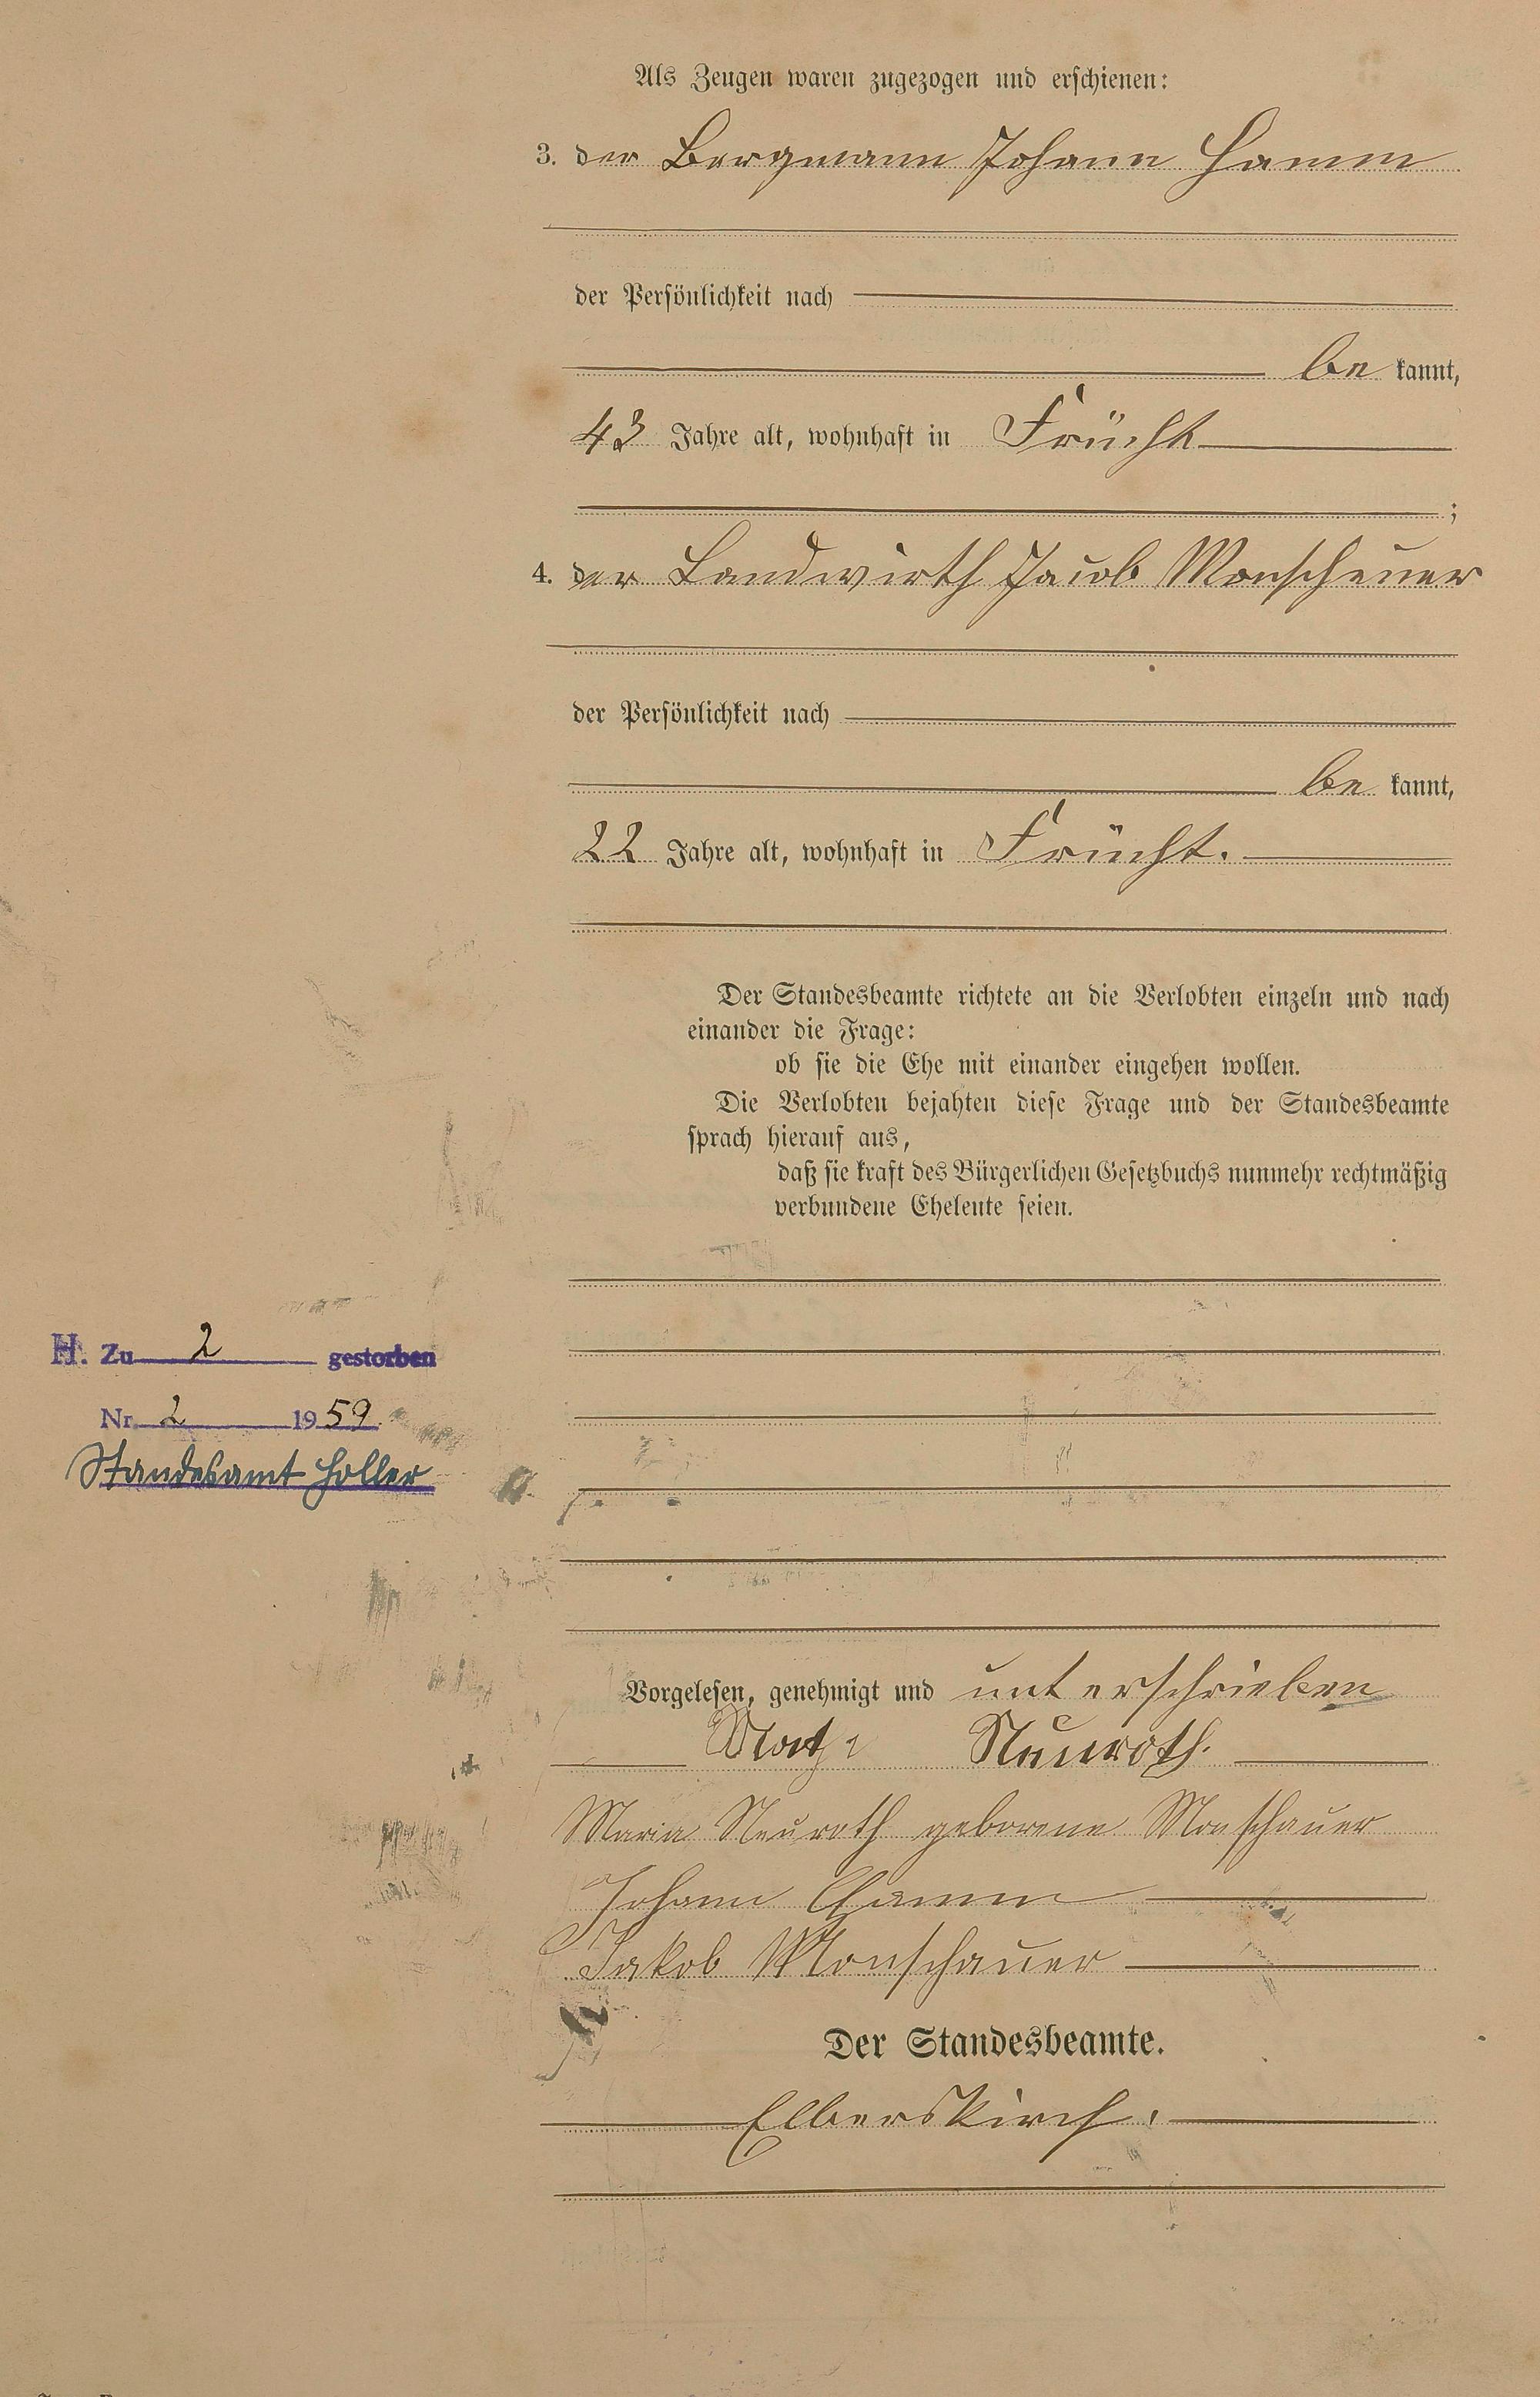 Als Zeugen waren zugezogen und erschienen:
3. der Bergmann Johann Hamm
der Persönlichkeit nach
be kannt,
43 Jahre alt, wohnhaft in Frücht
;
4. der Landwirth Jacob Monschauer
der Persönlichkeit nach
be kannt,
22 Jahre alt, wohnhaft in Frücht.
Der Standesbeamte richtete an die Verlobten einzeln und nach
einander die Frage:
ob sie die Ehe mit einander eingehen wollen.
Die Verlobten bejahten diese Frage und der Standesbeamte
sprach hierauf aus,
daß sie kraft des Bürgerlichen Gesetzbuchs nunmehr rechtmäßig
verbundene Eheleute seien.
H. Zu 2 gestorben
Nr. 2 1959.
Standesamt Holler
Vorgelesen, genehmigt und unterschrieben
Neuroth.
Maria Neuroth geborene Monschauer
Johann Hamm
Jakob Monschauer
Der Standesbeamte.
Elberskirch.